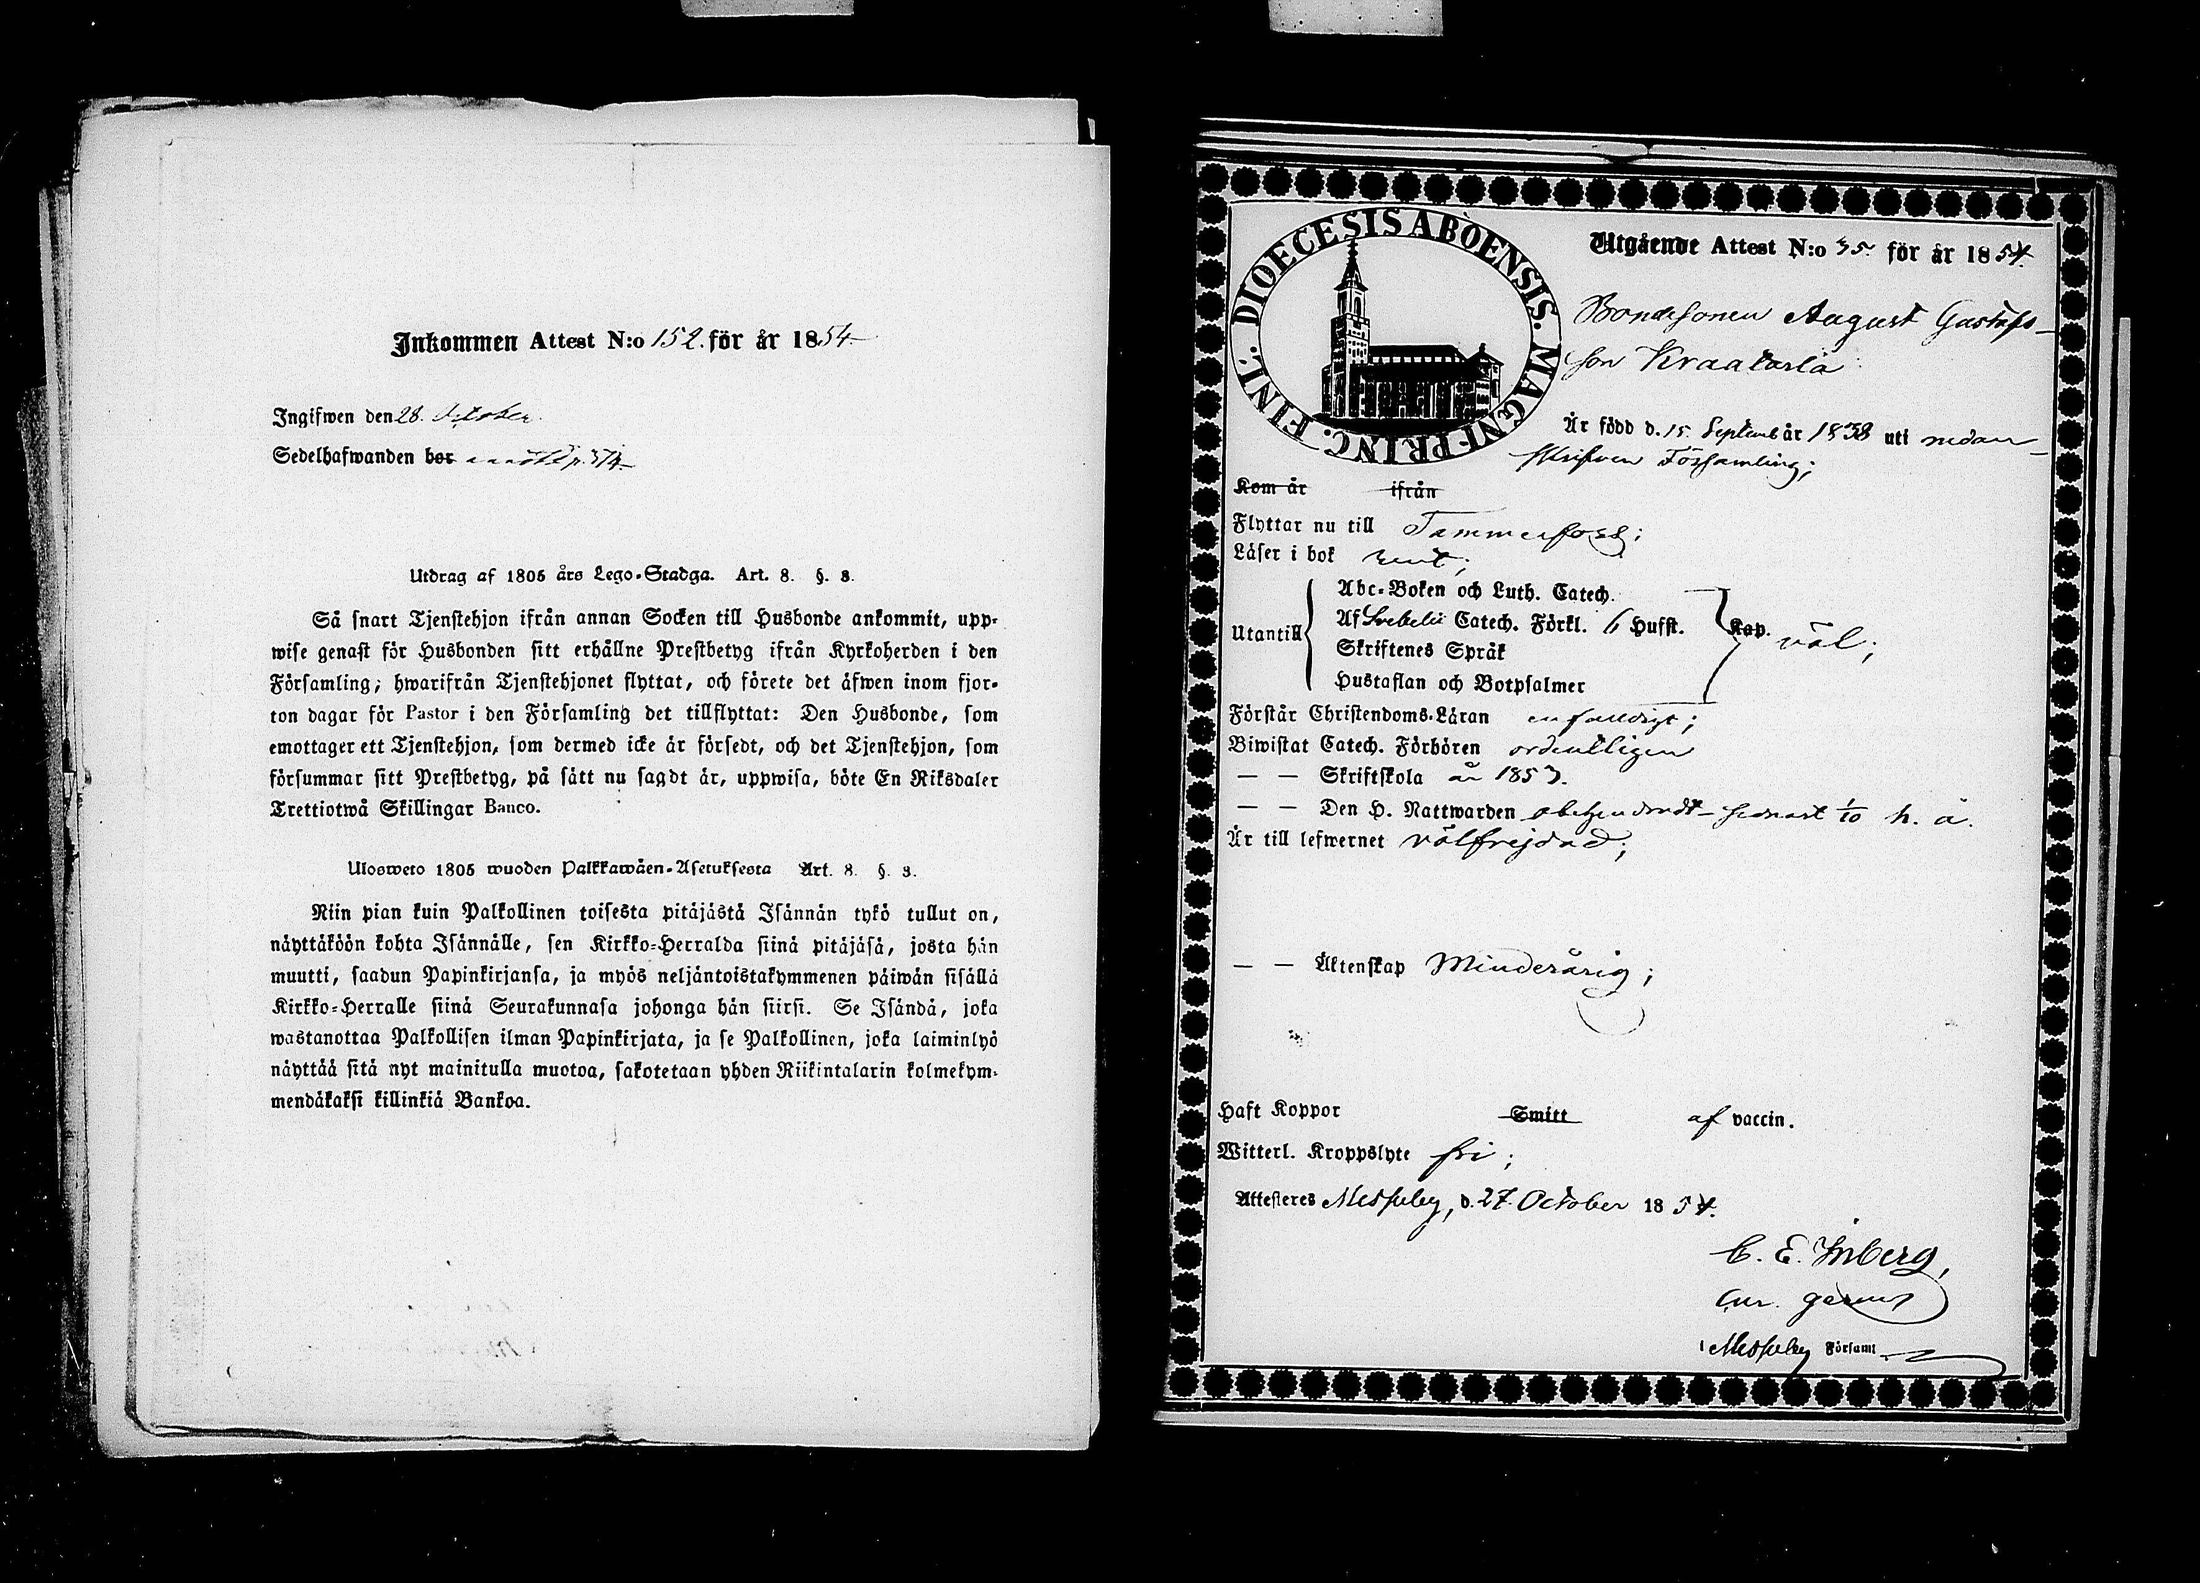 Inkommen Attest N:o 152. för år 1854
Ingifwen den 28. October
Sedelhafwanden bor
Utdrag af 1805 års Lego-Stadga. Art. 8. §. 3.
Så snart Tjenstehjon ifrån annan Socken till Husbonde ankommit, upp-
wise genast för Husbonden sitt erhållne Prestbetyg ifrån Kyrkoherden i den
Församling; hwarifrån Tjenstehjonet flyttat, och förete det äfwen inom fjor-
ton dagar för Pastor i den Församling det tillflyttat: Den Husbonde, som
emottager ett Tjenstehjon, som dermed icke är försedt, och det Tjenstehjon, som
försummar sitt Prestbetyg, på sätt nu sagdt är, uppwisa, böte En Riksdaler
Trettiotwå Skillingar Banco.
Ulosweto 1805 wuoden Palkkawäen-Asetuksesta Art. 8. §. 3.
Niin pian kuin Palkollinen toisesta pitäjästä Isännän tykö tullut on,
näyttäköön kohta Isännälle, sen Kirkko-Herralda siinä pitäjäsä, josta hän
muutti, saadun Papinkirjansa, ja myös neljäntoistakymmenen päiwän sisällä
Kirkko-Herralle siinä Seurakunnasa johonga hän siirsi. Se Isändä, joka
wastanottaa Palkollisen ilman Papinkirjata, ja se Palkollinen, joka laiminlyö
näyttää sitä nyt mainitulla muotoa, sakotetaan yhden Riikintalarin kolmekym-
mendäkaksi killinkiä Bankoa.
DIOECESIS ABOENSIS. MAGNI-PRINC. FINL.
Utgående Attest N:o 35. för år 1854.
Bondesonen August Gustafs-
son Kraatarla
Är född d. 15. Septemb år 1838 uti nedan-
skrifven Församling;
Kom år ifrån
Flyttar nu till Tammerfors;
Läser i bok rent;
Abc-Boken och Luth. Catech.
Af Svebelii Catech. Förkl. 6 Hufst. Kap. väl;
Utantill
Skriftenes Språk
Hustaflan och Botpsalmer
Förstår Christendoms-Läran enfaldigt;
Biwistat Catech. Förhören ordentligen
— — Skriftskola år 1853.
— — Den H. Nattwarden obehindradt senast 1/10 h. a.
Är till lefwernet välfrejdad;
— — Äktenskap Minderårig;
Haft Koppor Smitt af vaccin.
Witterl. Kroppslyte fri;
Attesteres Messuby, d. 27 October 1854.
C. E. Inberg,
Cur. gerens
i Messuby Församl